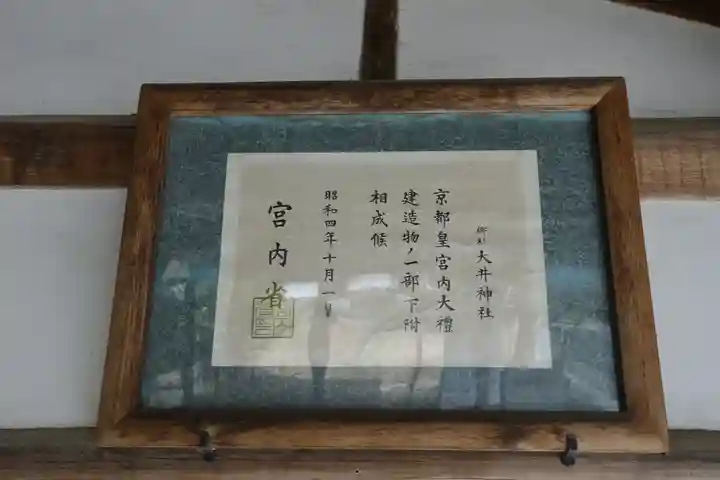 郷社 大井神社
京都皇宮内大禮
建造物ノ一部下附
相成候
昭和四年十月一日
宮内省